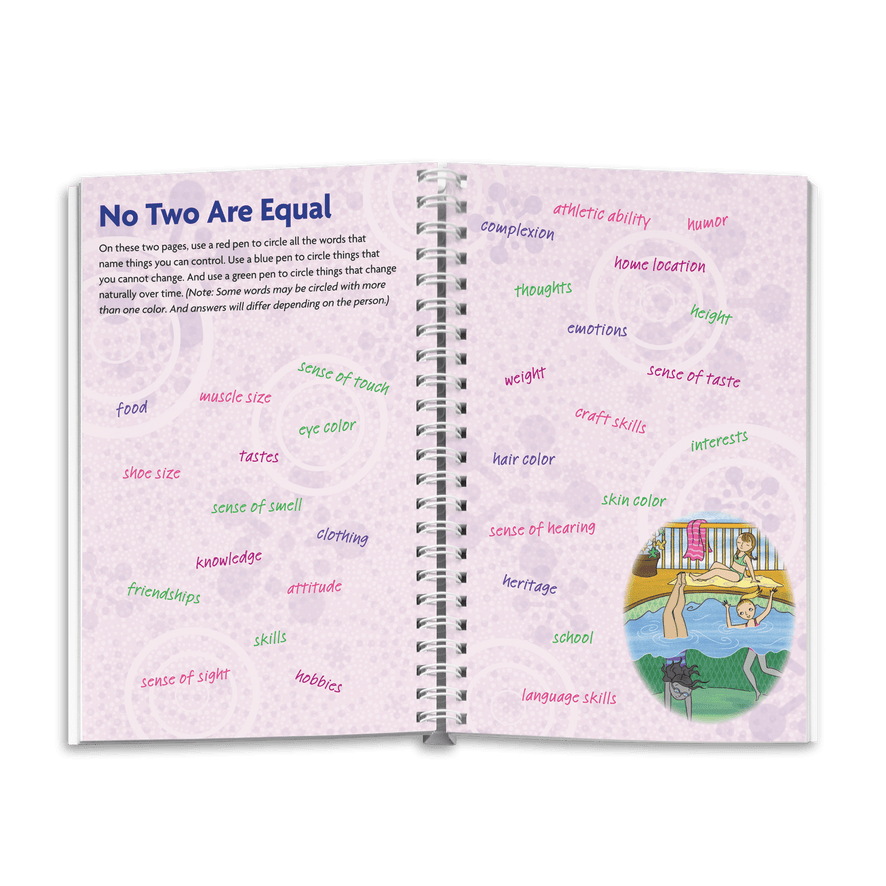 No Two Are Equal
On these two pages, use a red pen to circle all the words that
name things you can control. Use a blue pen to circle things that
you cannot change. And use a green pen to circle things that change
naturally over time. (Note: Some words may be circled with more
than one color. And answers will differ depending on the person.)
sense of touch
food
muscle size
eye color
tastes
shoe size
sense of smell
clothing
knowledge
friendships
attitude
skills
sense of sight
hobbies
athletic ability
complexion
humor
home location
thoughts
height
emotions
weight
sense of taste
craft skills
interests
hair color
skin color
sense of hearing
heritage
school
language skills